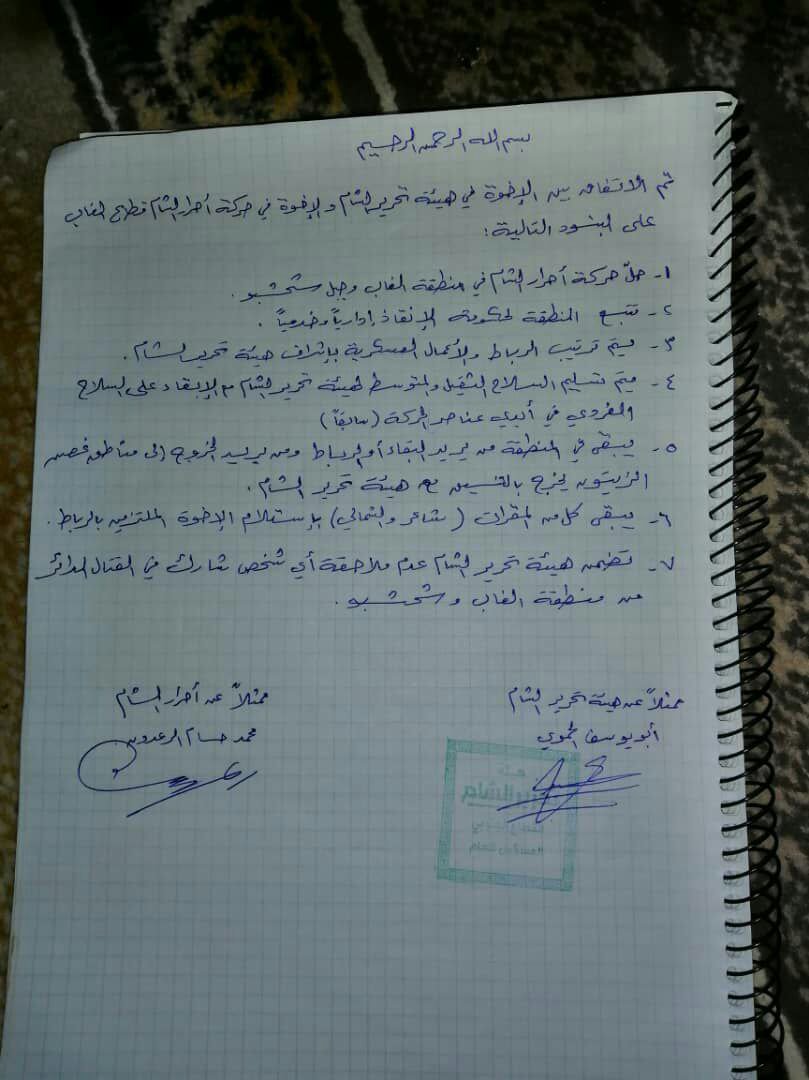 بسم الله الرحمن الرحيم
تم الاتفاق بين الإخوة في هيئة تحرير الشام والإخوة في حركة أحرار الشام قطاع الغاب
على البنود التالية:
١- حلّ حركة أحرار الشام في منطقة الغاب وجبل شحشبو.
٢- تتبع المنطقة لحكومة الإنقاذ إدارياً وخدمياً.
٣- يتم ترتيب الرباط والأعمال العسكرية بإشراف هيئة تحرير الشام.
٤- يتم تسليم السلاح الثقيل والمتوسط لهيئة تحرير الشام مع الإبقاء على السلاح
الفردي في أيدي عناصر الحركة (سابقاً)
٥- يبقى في المنطقة من يريد البقاء أو الرباط ومن يريد الخروج إلى مناطق غصن
الزيتون يخرج بالتنسيق مع هيئة تحرير الشام.
٦- يبقى كل من المقرات (شاعر والشمالي) بإستلام الإخوة الملتزمين بالرباط.
٧- تضمن هيئة تحرير الشام عدم ملاحقة أي شخص شارك في القتال الدائر
من منطقة الغاب وشحشبو.
ممثلاً عن هيئة تحرير الشام
أبو يوسف الحموي
ممثلاً عن أحرار الشام
محمد حسام الرعدون
تحرير الشام